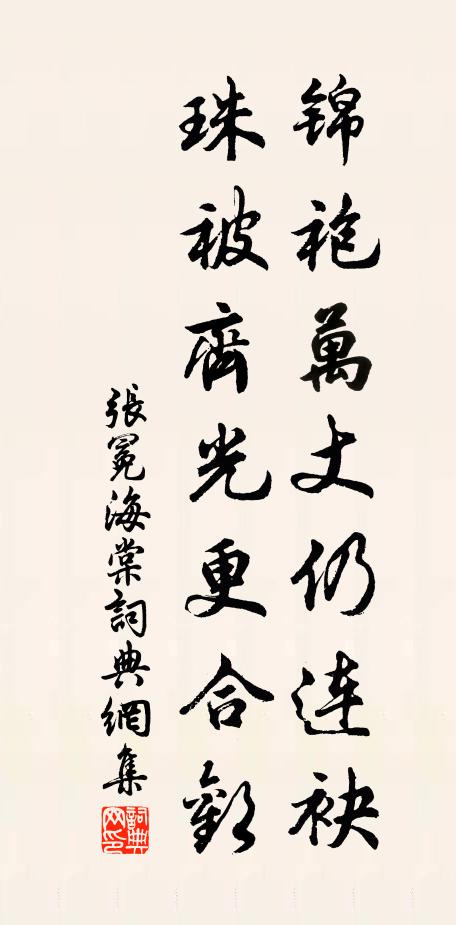 錦袍萬丈仍連袂
珠被齊光更合歡
張冕海棠詞典網集
詞典
网印